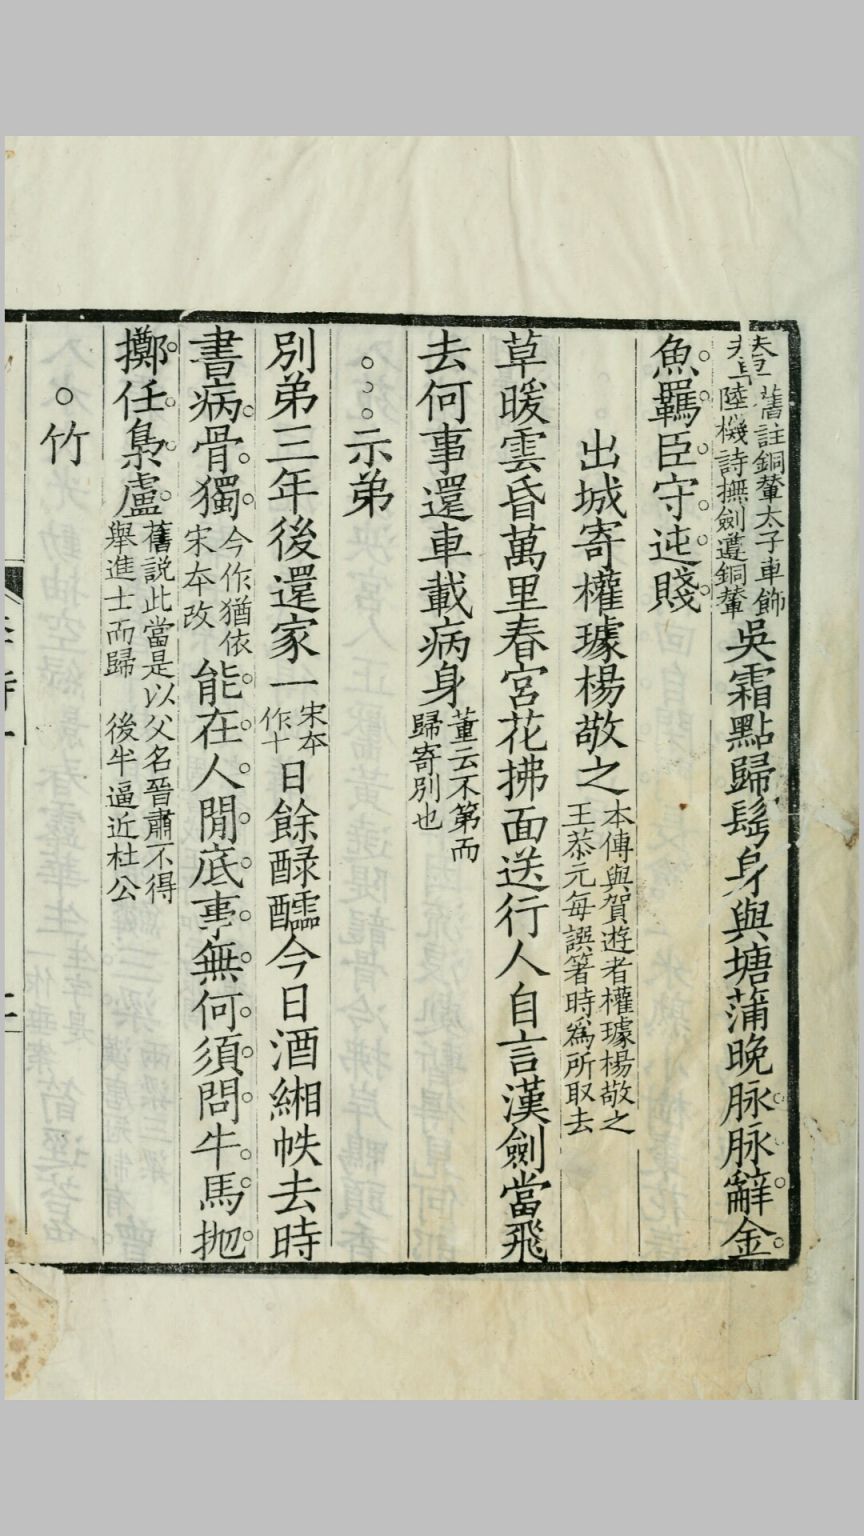 輦舊註銅輦太子車飾陸機詩撫劍遵銅輦吳霜點歸鬓身與塘蒲晚脉脉辭金
魚羈臣守迍賤
出城寄權璩楊敬之本傳與賀遊者權璩楊敬之王恭元每譔著時爲所取去
草暖雲昏萬里春宮花拂面送行人自言漢劍當飛
去何事還車載病身董云不第而歸寄別也
示弟
別弟三年後還家一宋夲作十日餘醁醽今日酒緗帙去時
書病骨獨今作猶依宋夲改能在人閒底事無何須問牛馬抛
擲任梟盧舊說此當是以父名晉肅不得舉進士而歸 後半逼近杜公
竹